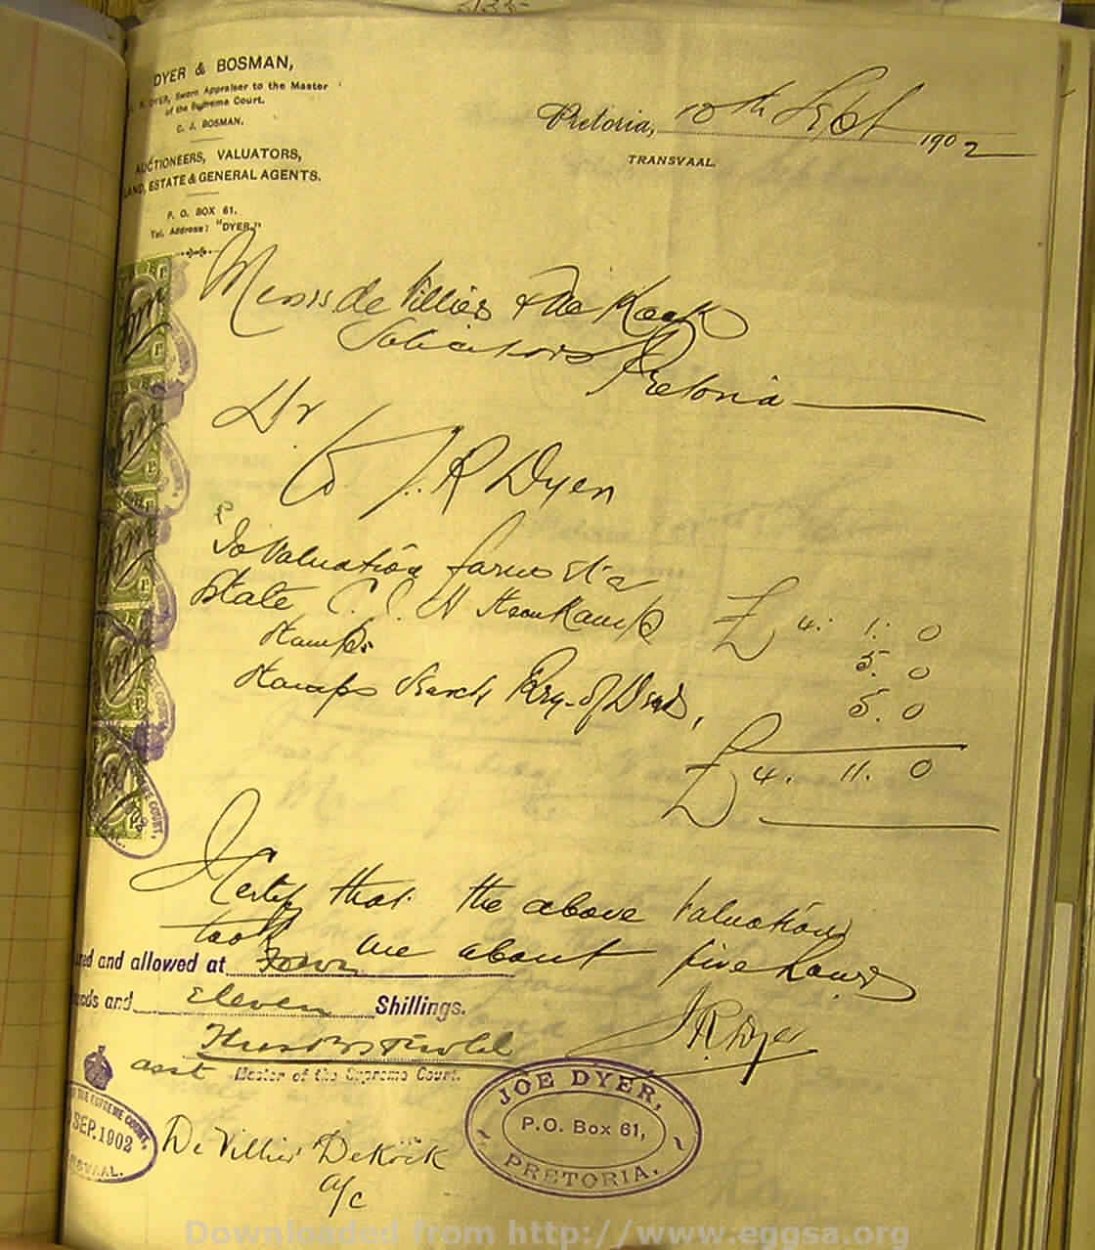 DYER & BOSMAN,
DYER, Sworn Appraiser to the Master
of the Supreme Court.
C. J. BOSMAN.
AUCTIONEERS, VALUATORS,
LAND, ESTATE & GENERAL AGENTS.
P. O. BOX 61.
Tel. Address: "DYER."
Pretoria, 10th Sept 1902
TRANSVAAL.
Messrs de Villiers & de Kock
Solicitors Pretoria
Dr
To J. R Dyer
To Valuation farms
State C. C. H £ 4. 1. 0
Stamps 5. 0
Stamps Search Reg. of Deeds, 5. 0
£ 4. 11. 0
I Certify that the above Valuations
took me about five hours
J R Dyer
ed and allowed at Four
nds and Eleven Shillings.
asst Master of the Supreme Court.
JOE DYER,
P.O. Box 61,
PRETORIA.
THE SUPREME COURT,
SEP. 1902
De Villiers DeKock
a/c
Downloaded from http://www.eggsa.org